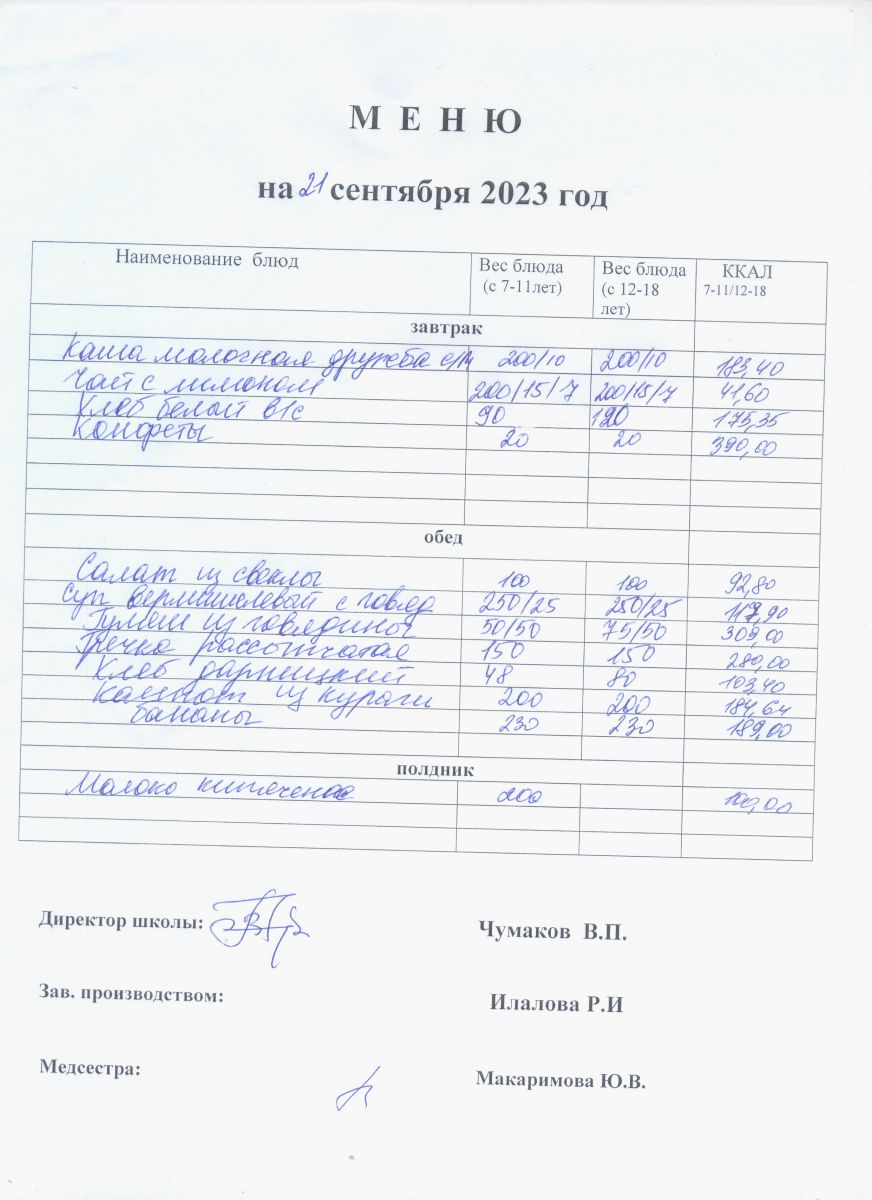 МЕНЮ
на 21 сентября 2023 год
Наименование блюд Вес блюда (с 7-11лет) Вес блюда (с 12-18 лет) ККАЛ 7-11/12-18
завтрак
Каша молочная дружба с/м 200/10 200/10 183,40
Чай с лимоном 200/15/7 200/15/7 41,60
Хлеб белый в/с 90 120 175,35
Конфеты 20 20 390,00
обед
Салат из свеклы 100 100 92,80
Суп вермишелевый с говяд 250/25 250/25 117,90
Гуляш из говядины 50/50 75/50 309,00
Гречка рассыпчатая 150 150 280,00
Хлеб дарницкий 48 80 103,40
Компот из кураги 200 200 184,64
бананы 230 230 189,00
полдник
Молоко кипяченое 200 100,00
Директор школы: Чумаков В.П.
Зав. производством: Илалова Р.И
Медсестра: Макаримова Ю.В.